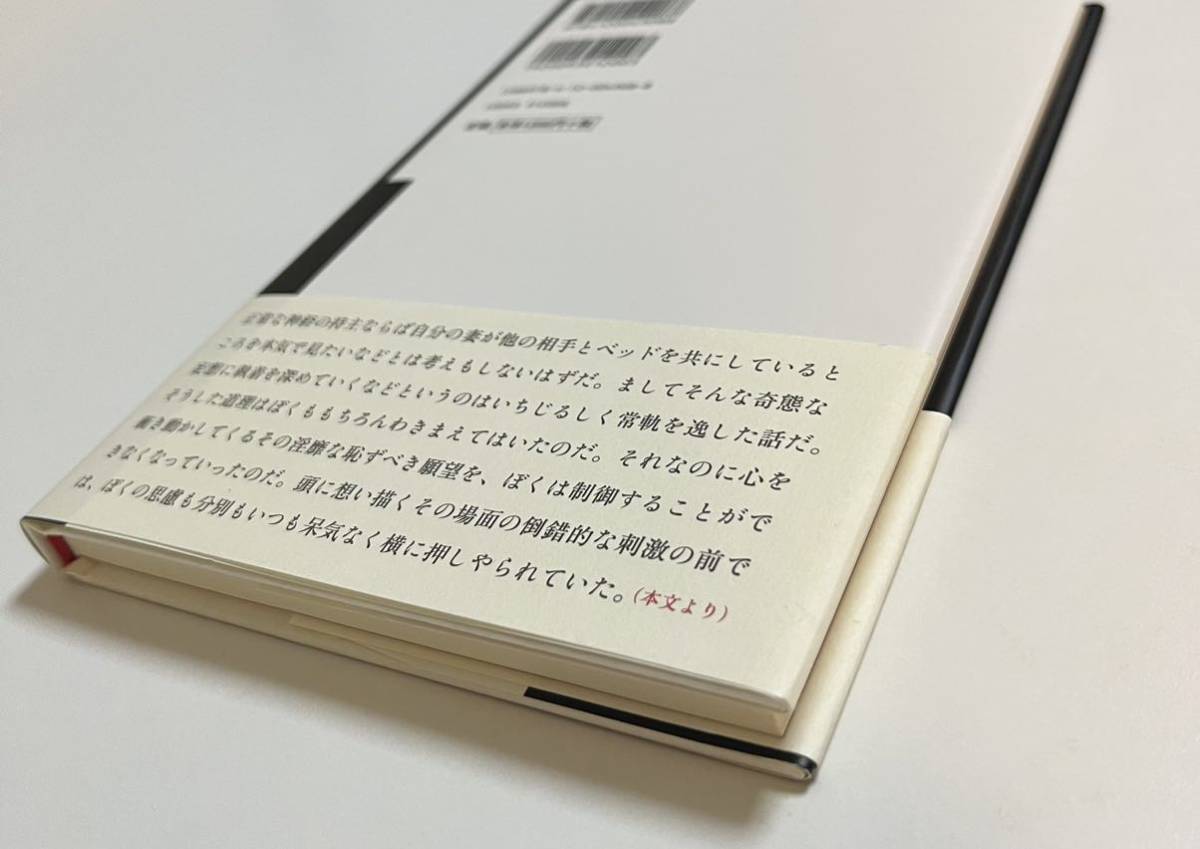 正常な神経の持主ならば自分の妻が他の相手とベッドを共にしていると
ころを本気で見たいなどとは考えもしないはずだ。ましてそんな奇態な
妄想に執着を深めていくなどというのはいちじるしく常軌を逸した話だ。
そうした道理はぼくももちろんわきまえてはいたのだ。それなのに心を
衝き動かしてくるその淫靡な恥ずべき願望を、ぼくは制御することがで
きなくなっていったのだ。頭に想い描くその場面の倒錯的な刺激の前で
は、ぼくの思慮も分別もいつも呆気なく横に押しやられていた。(本文より)